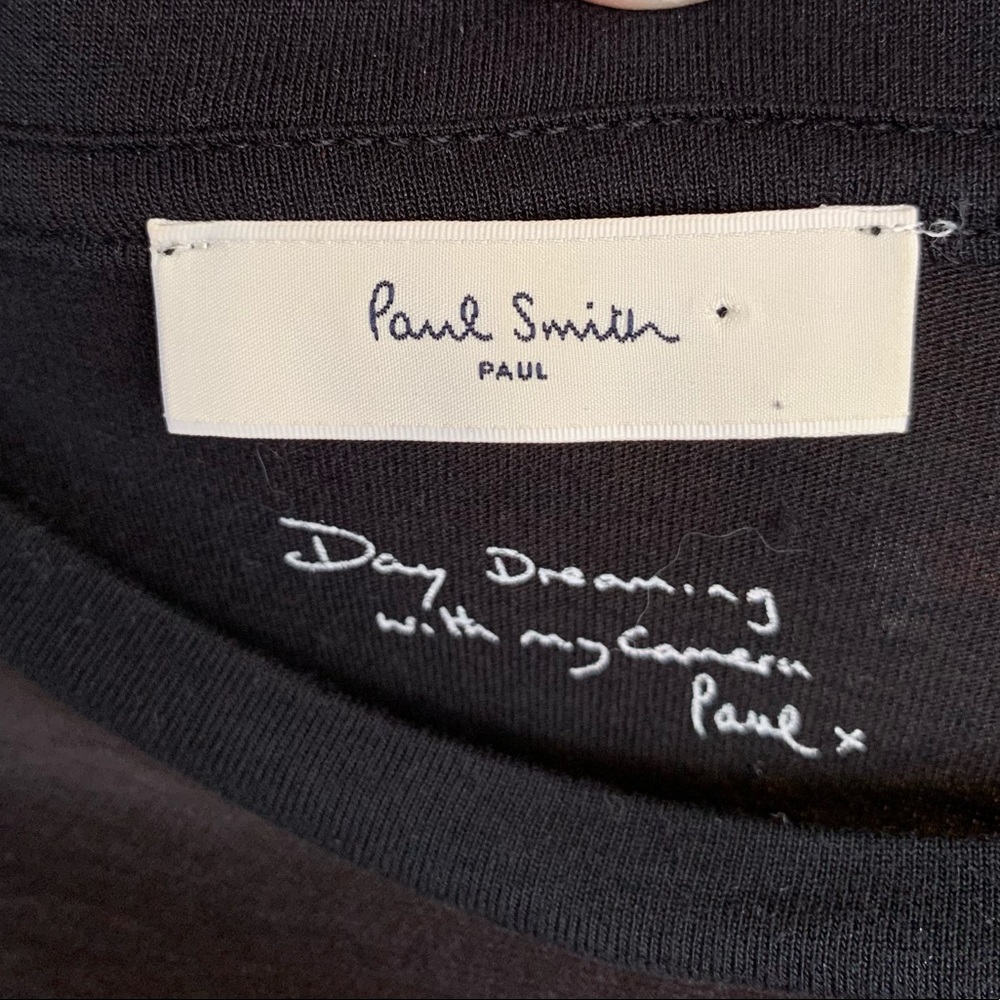 Paul Smith
PAUL
Day Dreaming
with my Camera
Paul x